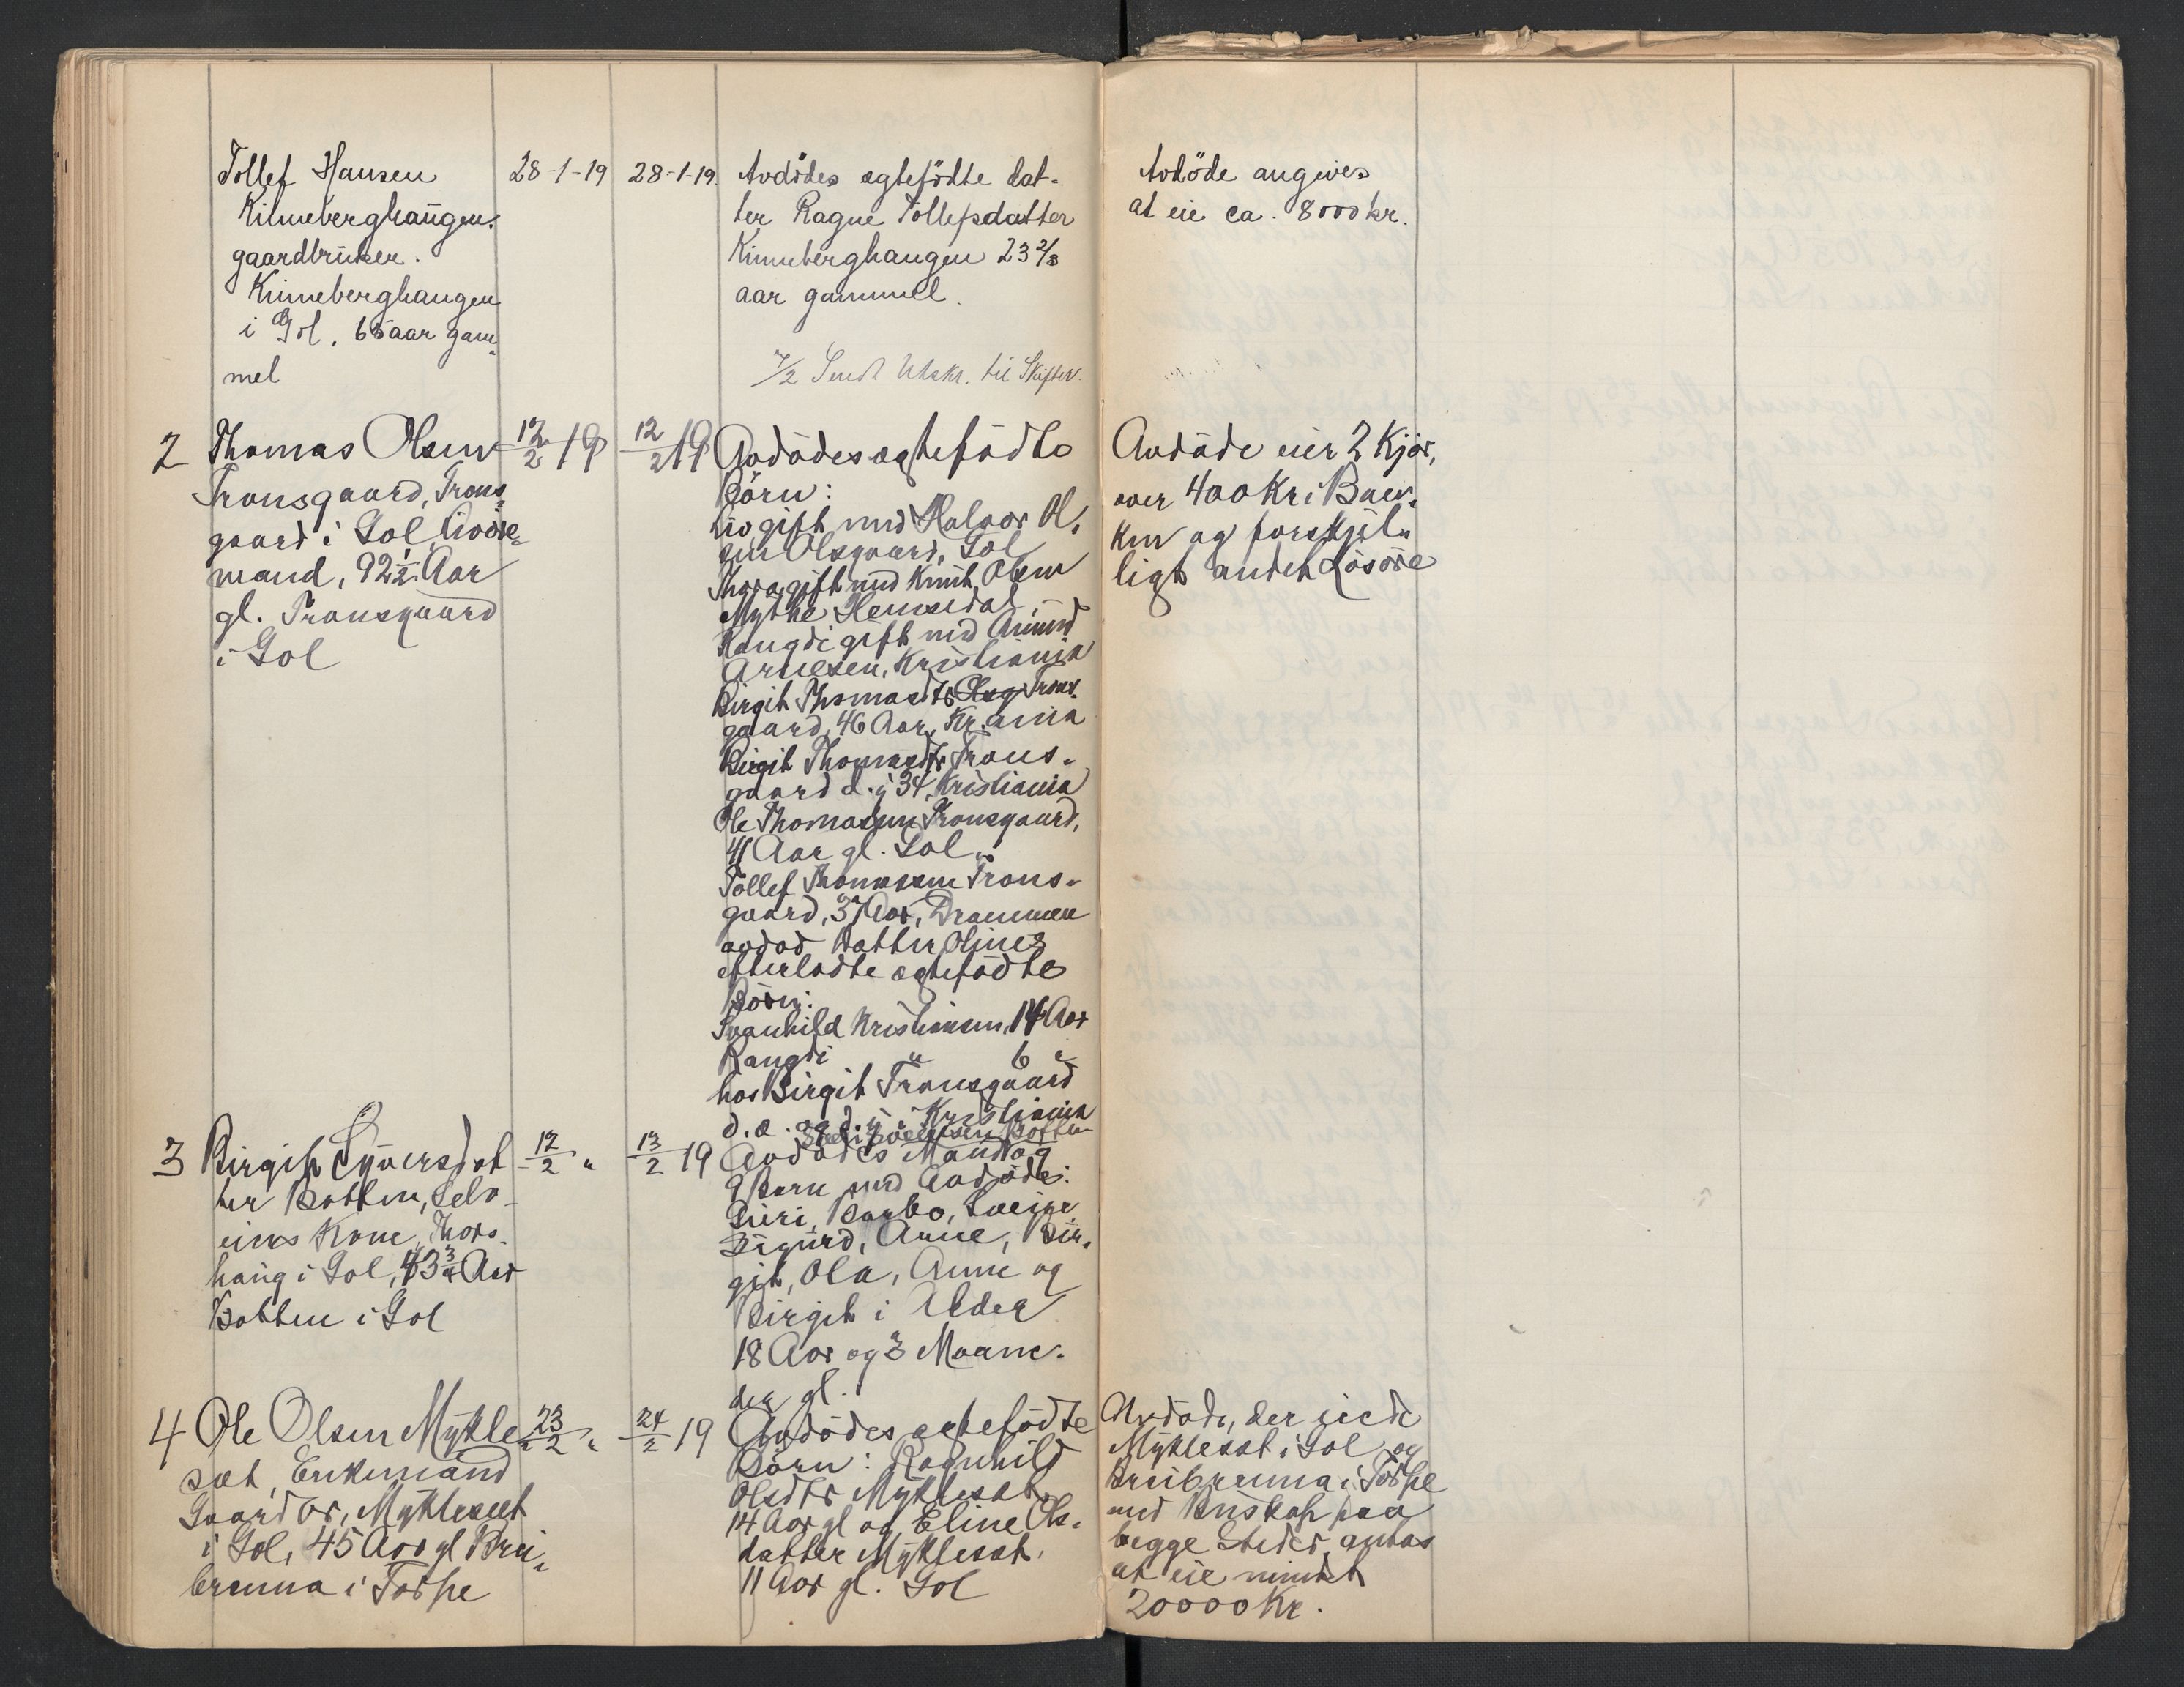 Tollef Hansen
Kinneberghaugen.
gaardbruker.
Kinneberghaugen
i Gol, 65 aar gam-
mel
28-1-19
28-1-19.
Avdödes egtefödte dat-
ter Ragne Tollefsdatter
Kinneberghaugen 23 2/3
aar gammel.
7/2 Sendt Utskr. til Skifter.
Avdöde angives
at eie ca. 8000 kr.
2 Thomas Olsen
Tronsgaard, Trons-
gaard i Gol,
mand, 92 1/2 Aar
gl. Tronsgaard
i Gol
12/2 19
12/2 19
Avdödes egtefödte
Börn:
Liv gift med Halvor Ol-
sen Olsgaard, Gol
Thora gift med Knut Olsen
Mythe Hemsedal
Rangdi gift med
Arnesen, Kristiania
Birgit Thomasdtr Trons-
gaard, 46 Aar, Kr.ania
Birgit Thomasdtr Trons-
gaard d.y 34, Kristiania
Ole Thomassen Tronsgaard,
41 Aar gl. Gol
Tollef Thomassen Trons-
gaard, 37 Aar, Drammen
avdød Datter Olines
efterladte egtefödte
Börn:
Svanhild Kristiansen, 14 Aar
Rangdi " 6 "
hos Birgit Tronsgaard
d.æ. og d.y i Kristiania
Avdöde eier 2 Kjör,
over 400 Kr i Ban-
ken og forskjel-
ligt andet Lösöre
3 Birgit Syversdat-
ter Botten, Selv-
eiers Kone, Thors-
haug i Gol, 43 3/4 Aar
Botten i Gol
12/2 "
13/2 19
Avdödes Mand og
9 Barn med Avdöde:
Guri, Barbo, Sveige
Sigurd, Anne, Bir-
git, Ola, Anne og
Birgit i Alder
18 Aar og 3 Maane-
der gl.
4 Ole Olsen Mykle-
set, Enkemand
Gaardbr, Mykleset
i Gol, 45 Aar gl Brei-
brenna i Torpe
23/2 "
24/2 19
Avdödes egtefödte
Börn: Ragnhild
Olsdtr Mykleset
14 Aar gl og Eline Ols-
datter Mykleset.
11 Aar gl. Gol
Avdöde, der eiede
Mykleset i Gol og
Breibrenna i Torpe
med Buskap paa
begge Steder, antas
at eie mindst
20000 Kr.